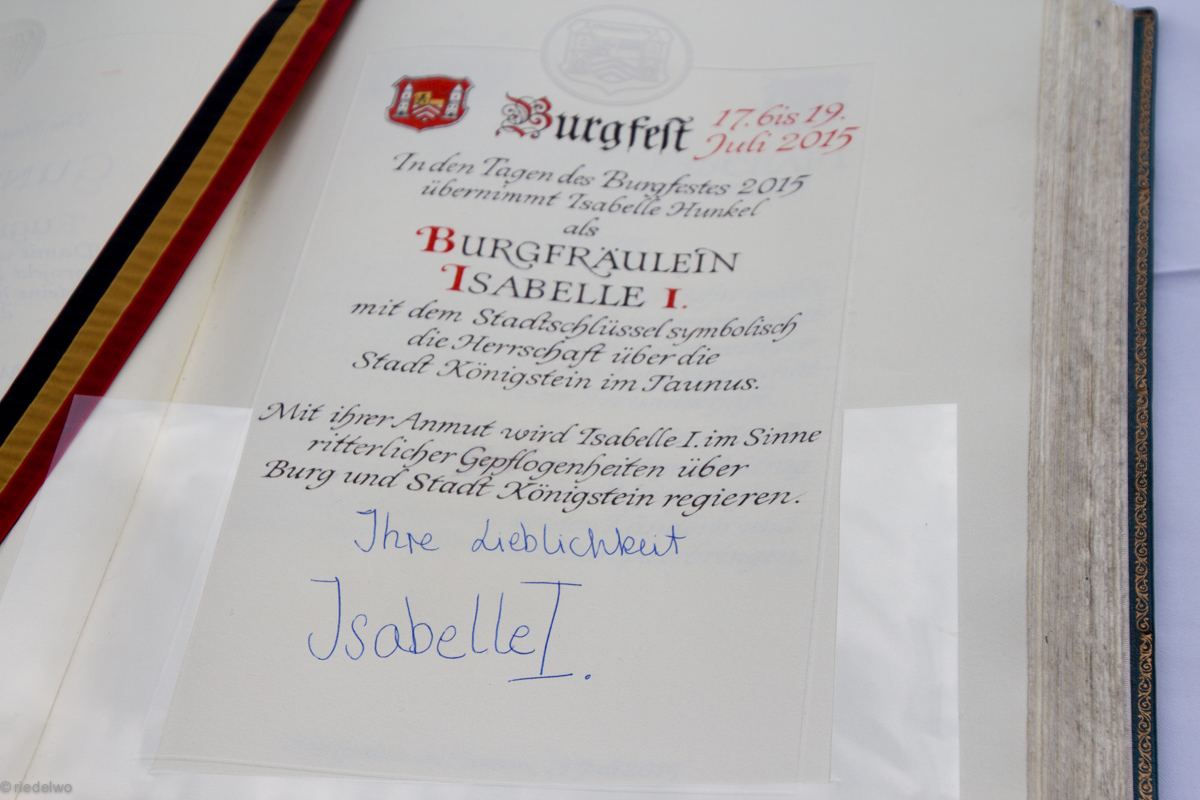 Burgfest
17. bis 19.
Juli 2015
In den Tagen des Burgfestes 2015
übernimmt Isabelle Hunkel
als
BURGFRÄULEIN
ISABELLE I.
mit dem Stadtschlüssel symbolisch
die Herrschaft über die
Stadt Königstein im Taunus.
Mit ihrer Anmut wird Isabelle I. im Sinne
ritterlicher Gepflogenheiten über
Burg und Stadt Königstein regieren.
Ihre Lieblichkeit
Isabelle I.
© riedelwo